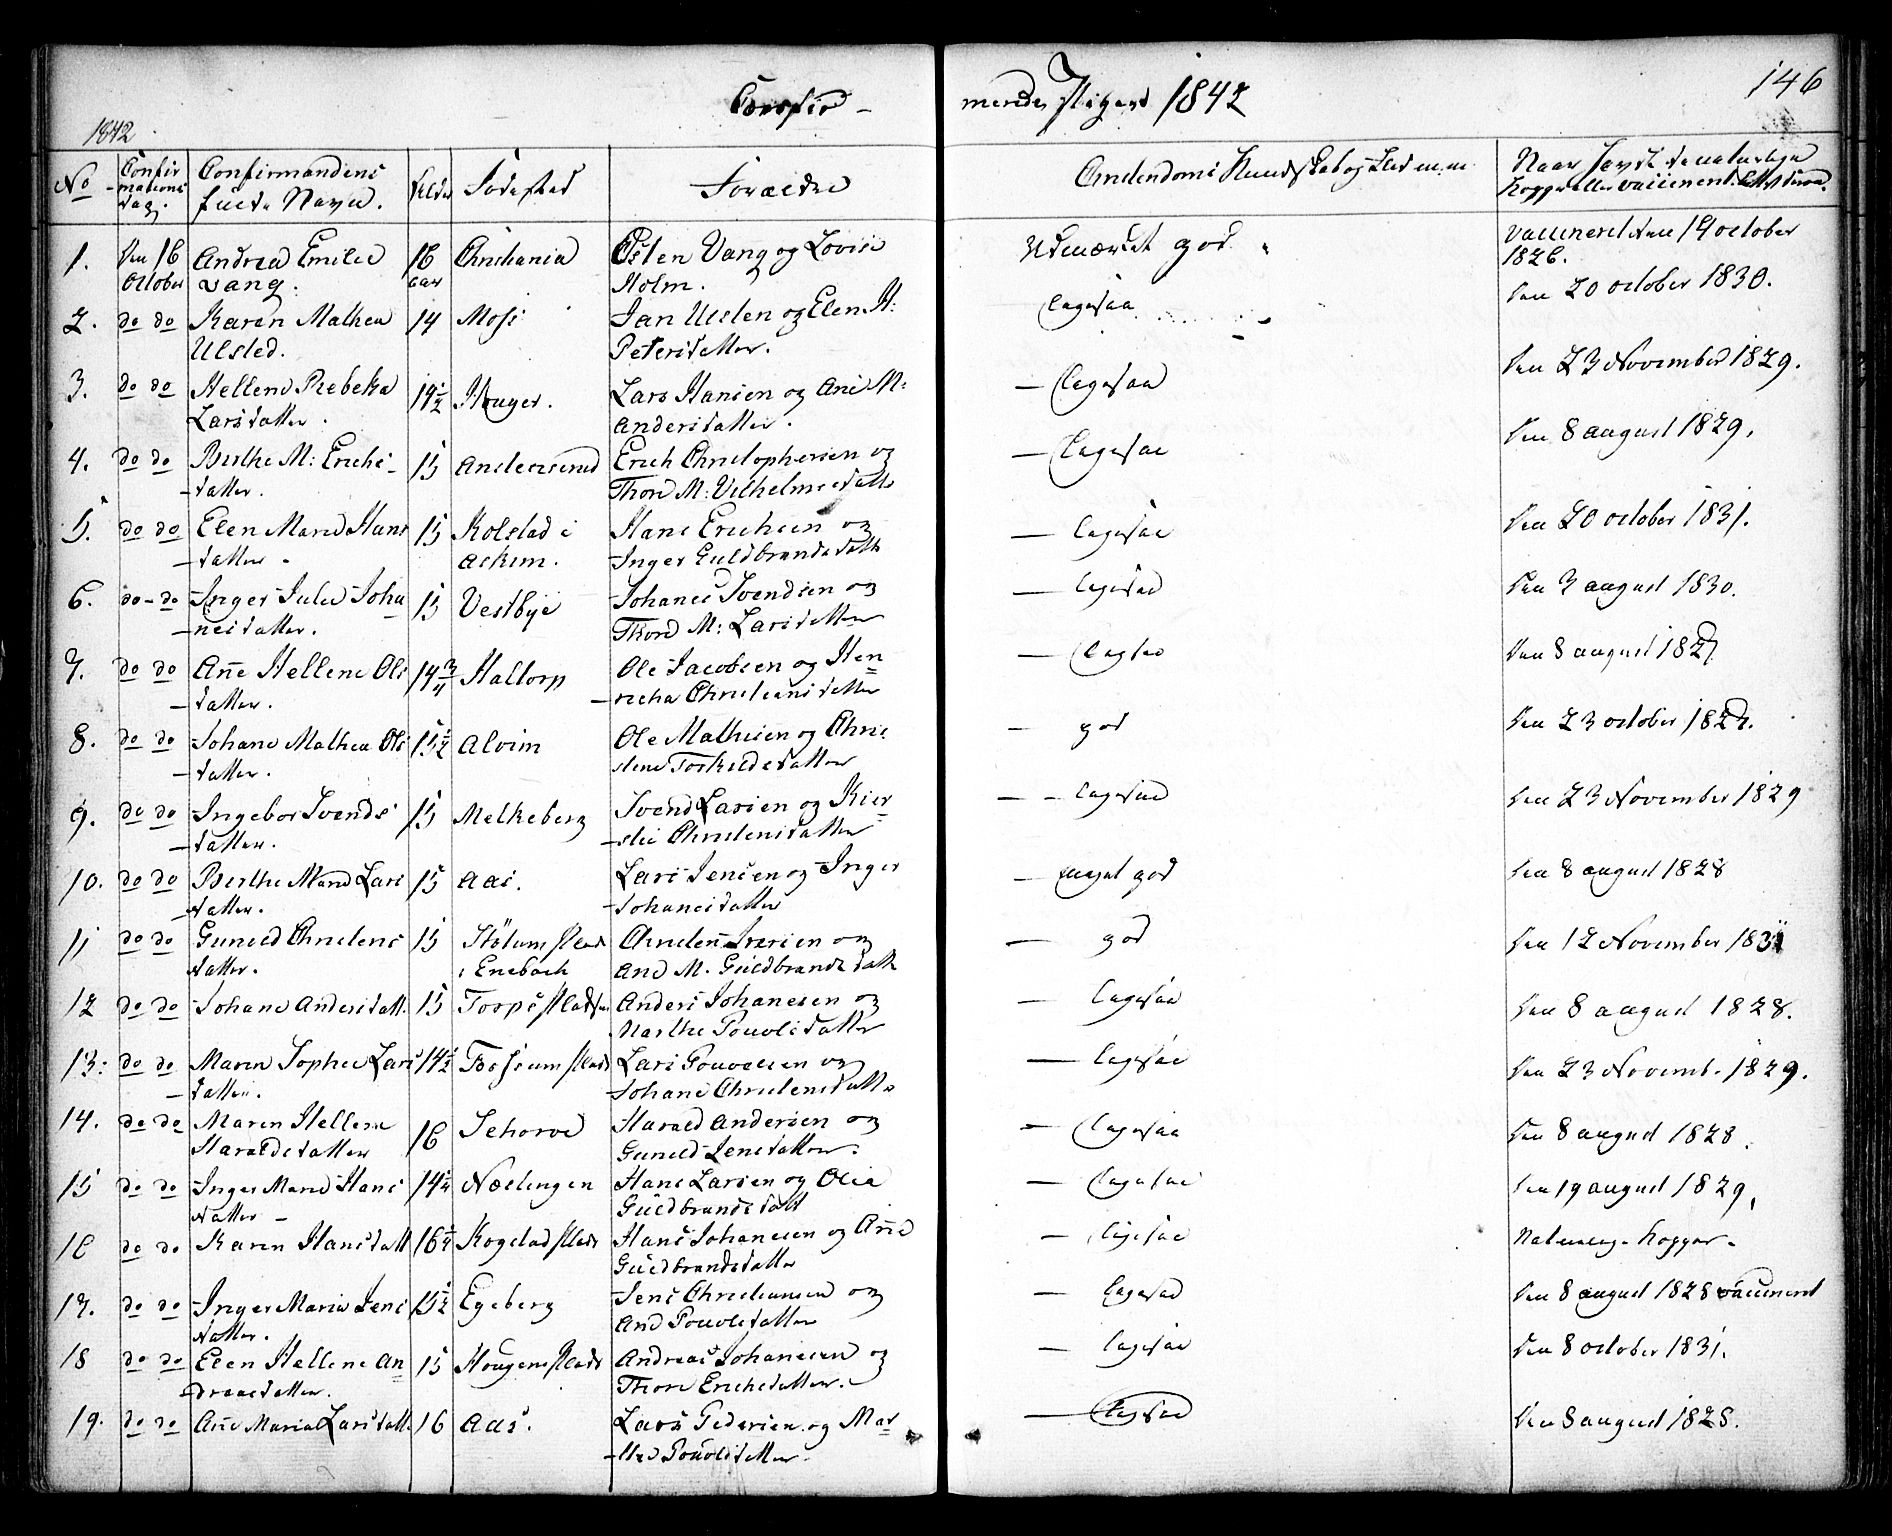 Confir-
mende Piger 1842
146
1842
No
Confir
mations
dag.
Confirmandens
fulde Navn.
Alder
Fødested
Forældre
Christendoms Kundskab og Flid m.m.
Naar havt de naturlige
Kopper eller vaccineret
1. Den 16 Andrea Emilie 16 Christiania Osten Vang og Lovise Udmærket god. vaccineret den 19 october
October Vang. aar Holm. 1826.
2. do do Karen Mathea 14 Moss Jan Ulsten og Elen H: Ligesaa den 20 october 1830.
Ulsted. Petersdatter.
3. do do Hellene Rebeka 14½ Huger. Lars Hansen og Ane M: — Ligesaa den 23 November 1829.
Larsdatter. Andersdatter.
4. do do Berthe M: Erichs- 15 Erich Christophersen og — Ligesaa den 8 august 1829.
datter. Thore M: Vilhelmsdatter
5. do do Elen Marie Hans 15 Kolstad i Hans Erichsen og — Ligesaa den 20 october 1831.
datter. Askim. Inger Guldbrandsdatter
6. do-do Inger Julie Joha 15 Vestbye Johanes Svendsen og — Ligesaa den 3 august 1830.
nesdatter. Thore M: Larsdatter
7. do do Ane Hellene Ols 14¾ Haltorp Ole Jacobsen og Hen — Ligesaa den 8 august 1827
datter. richa Christiansdatter
8. do do Johane Mathea Ols 15½ Alvim Ole Mathisen og Chri — god den 23 october 1827.
datter. stene Torkildsdatter
9. do do Ingebor Svends 15 Melkeberg Svend Larsen og Kier — - Ligesaa den 23 November 1829
datter. stie Christensdatter
10. do do Berthe Marie Lars 15 Aas. Lars Jensen og Inger — meget god den 8 august 1828
datter. Johanesdatter
11 do do Gunild Christens 15 Christen Iversen og — god den 12 November 1831
datter. i Enebach Ane M. Guldbrandsdatt
12 do do Johane Andersdatt. 15 Torpspladsen Anders Johanesen og — Ligesaa den 8 august 1828.
Marthe Povolsdatter
13: do do Maren Sophie Lars 14½ Fossumplads Lars Povelsen og — Ligesaa den 23 Novemb. 1829.
datter. Johane Christensdatter
14. do do Maren Hellene 16 Harald Andersen og — Ligesaa den 8 august 1828.
Haraldsdatter Gunild Jensdatter.
15 do do Inger Marie Hans 14¼ Næslingen Hans Larsen og Olea — Ligesaa den 19 august 1829.
datter — Guldbrandsdatt
16 do do Karen Hansdatt 16½ Kogstadplads Hans Johanesen og Ane — Ligesaa Naturlig Kopper.
Guldbrandsdatter
17. do do Inger Maria Jens 15½ Egeberg Jens Christiansen og — Ligesaa den 8 august 1828 vaccineret
datter. Ane Povolsdatter
18 do do Elen Hellene An 15 Hougensplads Andreas Johanesen og — Ligesaa den 8 october 1831.
dreasdatter. Thore Erichsdatter.
19. do do Ane Maria Larsdatt. 16 Aas. Lars Pedersen og Mar — Ligesaa den 8 august 1828.
the Povolsdatter.